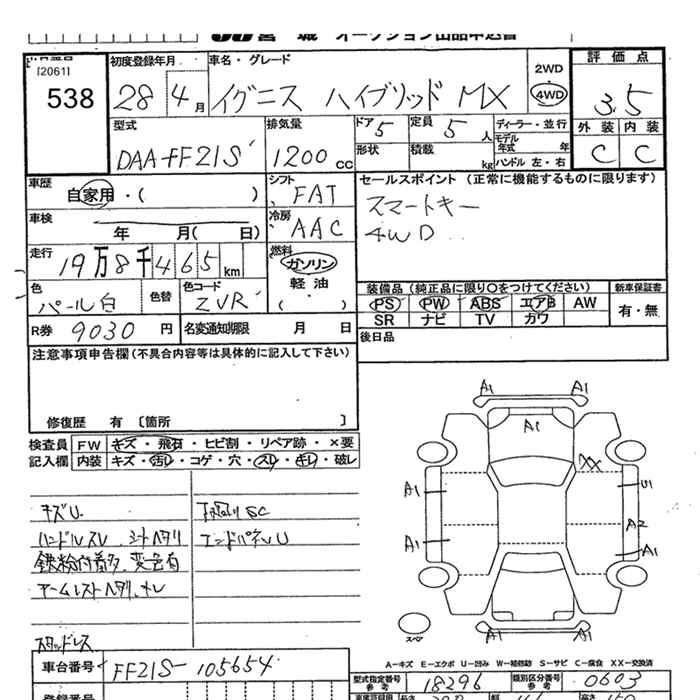 宮城 オークション出品申込書
[2061]
538
初度登録年月
28年 4月
車名・グレード
イグニス ハイブリッド MX
2WD
4WD
評価点
3.5
外装 内装
C C
型式
DAA-FF21S
排気量
1200cc
ドア 5
定員 5人
形状 積載 kg
ディーラー・並行
モデル年式 年
ハンドル 左・右
車歴
自家用・( )
シフト
FAT
車検
年 月( 日)
冷房
AAC
走行
19万8千465km
燃料
ガソリン
軽油
( )
色
パール白
色替
色コード
ZVR
R券 9030円
名変通知期限 月 日
セールスポイント (正常に機能するものに限ります)
スマートキー
4WD
装備品 (純正品に限り○をつけてください)
新車保証書
PS PW ABS エアB AW
SR ナビ TV カワ
有・無
後日品
注意事項申告欄(不具合内容等は具体的に記入して下さい)
修復歴 有 [箇所 ]
検査員
記入欄
FW キズ・飛石・ヒビ割・リペア跡・×要
内装 キズ・汚レ・コゲ・穴・スレ・キレ・破レ
キズU
ハンドルスレ シートヘタリ
鉄粉付着多、変色有
アームレストヘタリ、キレ
下回りSC
エンドパネルU
スタッドレス
A1 A1
A1
XX
A1 U1
A2
A1 A1
スペア
A1
A-キズ E-エクボ U-凹み W-補修跡 S-サビ C-腐食 XX-交換済
車台番号
FF21S-105654
登録番号
型式指定番号
参考
18296
類別区分番号
参考
0603